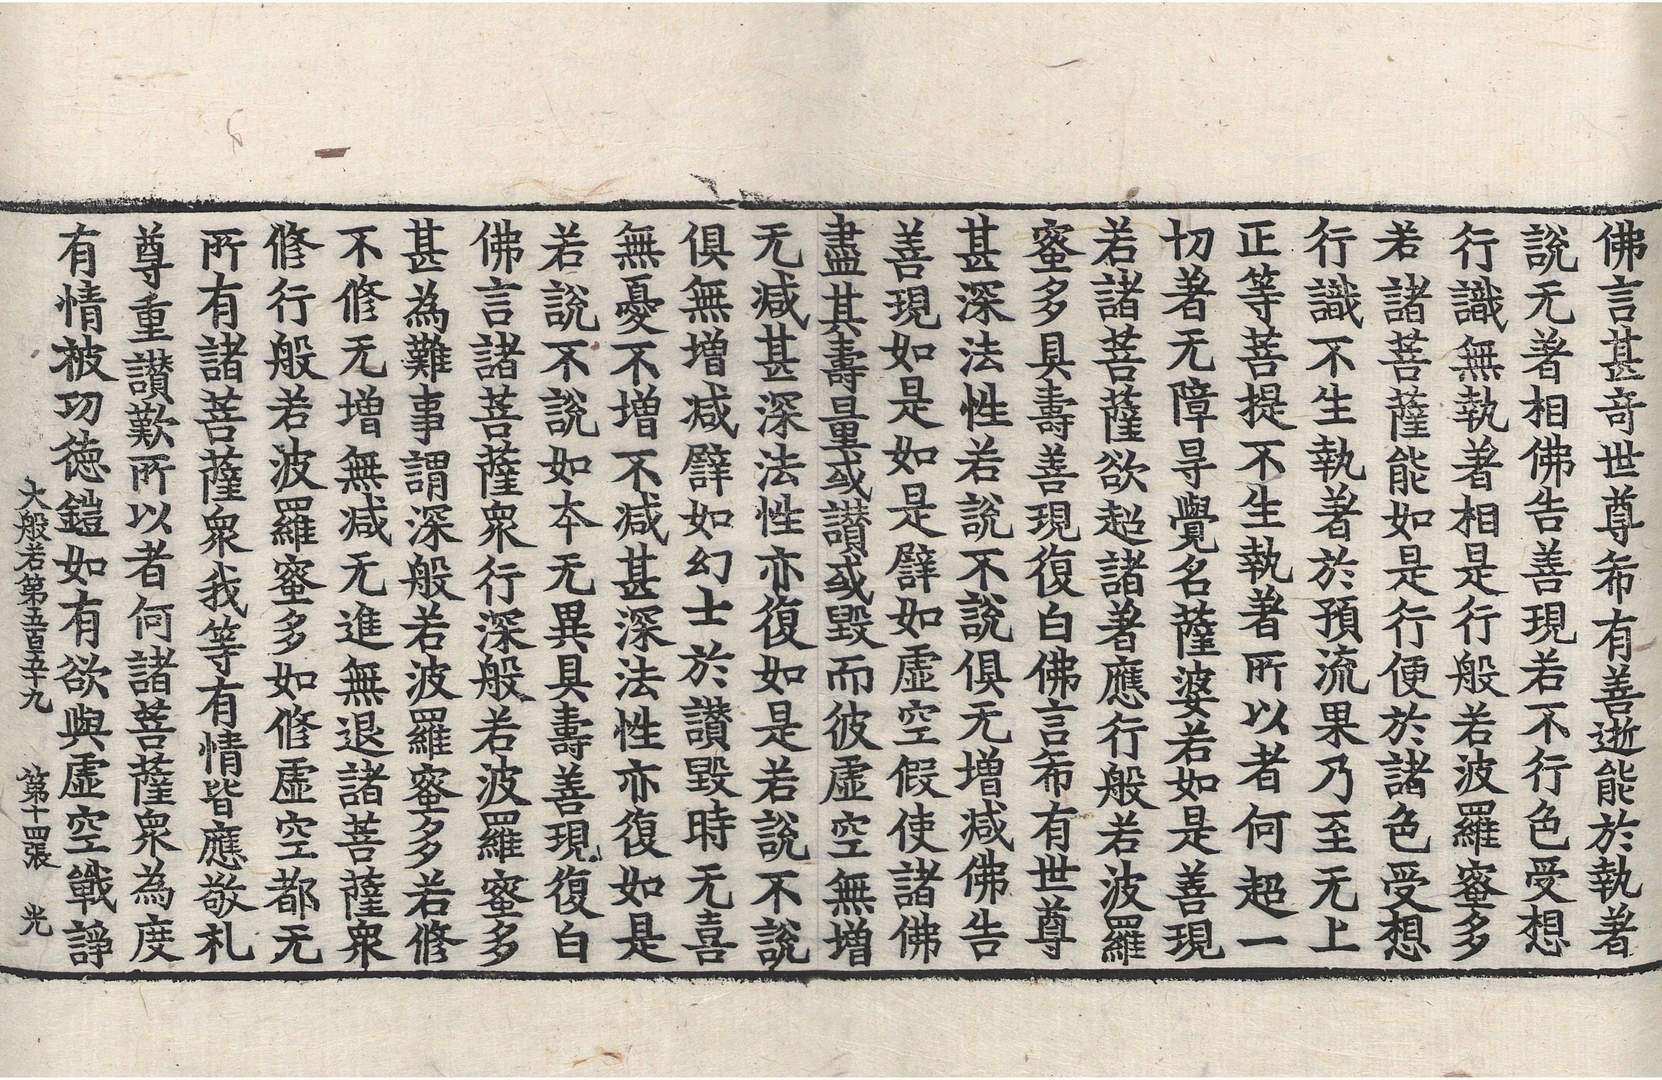 佛言甚奇世尊希有善逝能於執著
說无著相佛告善現若不行色受想
行識無執著相是行般若波羅蜜多
若諸菩薩能如是行便於諸色受想
行識不生執著於預流果乃至无上
正等菩提不生執著所以者何超一
切著无障㝵覺名薩婆若如是善現
若諸菩薩欲超諸著應行般若波羅
蜜多具壽善現復白佛言希有世尊
甚深法性若說不說俱无增减佛告
善現如是如是譬如虛空假使諸佛
盡其壽量或讃或毀而彼虛空無增
无减甚深法性亦復如是若說不說
俱無增减譬如幻士於讃毀時无喜
無憂不增不减甚深法性亦復如是
若說不說如夲无異具壽善現復白
佛言諸菩薩衆行深般若波羅蜜多
甚為難事謂深般若波羅蜜多若修
不修无增無减无進無退諸菩薩衆
修行般若波羅蜜多如修虛空都无
所有諸菩薩衆我等有情皆應敬礼
尊重讃歎所以者何諸菩薩衆為度
有情被功德鎧如有欲與虛空戰諍
大般若第五百五十九 第十四張 光